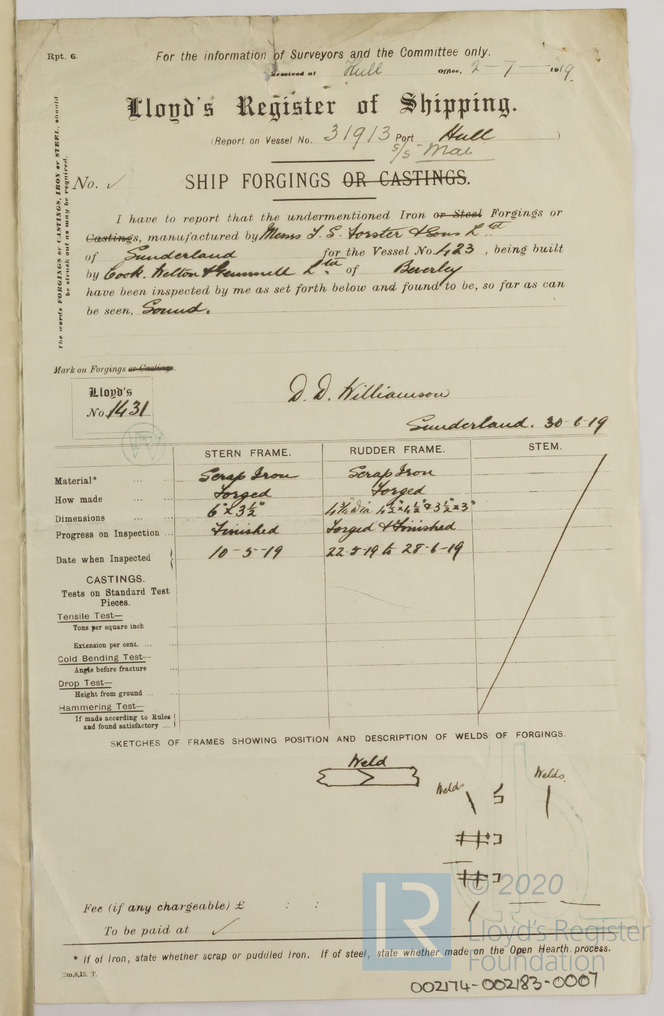 Rpt. 6.
For the information of Surveyors and the Committee only.
Received at Hull Office, 2-7-1919
Lloyd's Register of Shipping.
(Report on Vessel No. 31913 Port Hull)
s/s Mac
No. ✓
SHIP FORGINGS OR CASTINGS.
The words FORGINGS or CASTINGS, IRON or STEEL, should
be struck out as may be required.
I have to report that the undermentioned Iron or Steel Forgings or
Castings, manufactured by Messrs T. S. Forster & Sons Ltd
of Sunderland for the Vessel No. 423, being built
by Cook, Welton & Gemmell Ltd of Beverley
have been inspected by me as set forth below and found to be, so far as can
be seen, Sound.
Mark on Forgings or Castings.
Lloyd's
No. 1431
D. D. Williamson
Sunderland. 30-6-19
STERN FRAME. RUDDER FRAME. STEM.
Material* ... ... Scrap Iron Scrap Iron
How made ... ... Forged Forged
Dimensions ... ... 6" x 3½" 4½" x 4½" x 3½" x 3"
Progress on Inspection ... Finished Forged & Finished
Date when Inspected 10-5-19 22-5-19 to 28-6-19
CASTINGS.
Tests on Standard Test
Pieces.
Tensile Test—
Tons per square inch ...
Extension per cent. ... ...
Cold Bending Test—
Angle before fracture ...
Drop Test—
Height from ground ... ...
Hammering Test—
If made according to Rules
and found satisfactory ...
SKETCHES OF FRAMES SHOWING POSITION AND DESCRIPTION OF WELDS OF FORGINGS.
Weld
Welds
Welds.
Fee (if any chargeable) £ : :
To be paid at ✓
* If of Iron, state whether scrap or puddled iron. If of steel, state whether made on the Open Hearth process.
LR
© 2020
Lloyd's Register
Foundation
002174-002183-0007